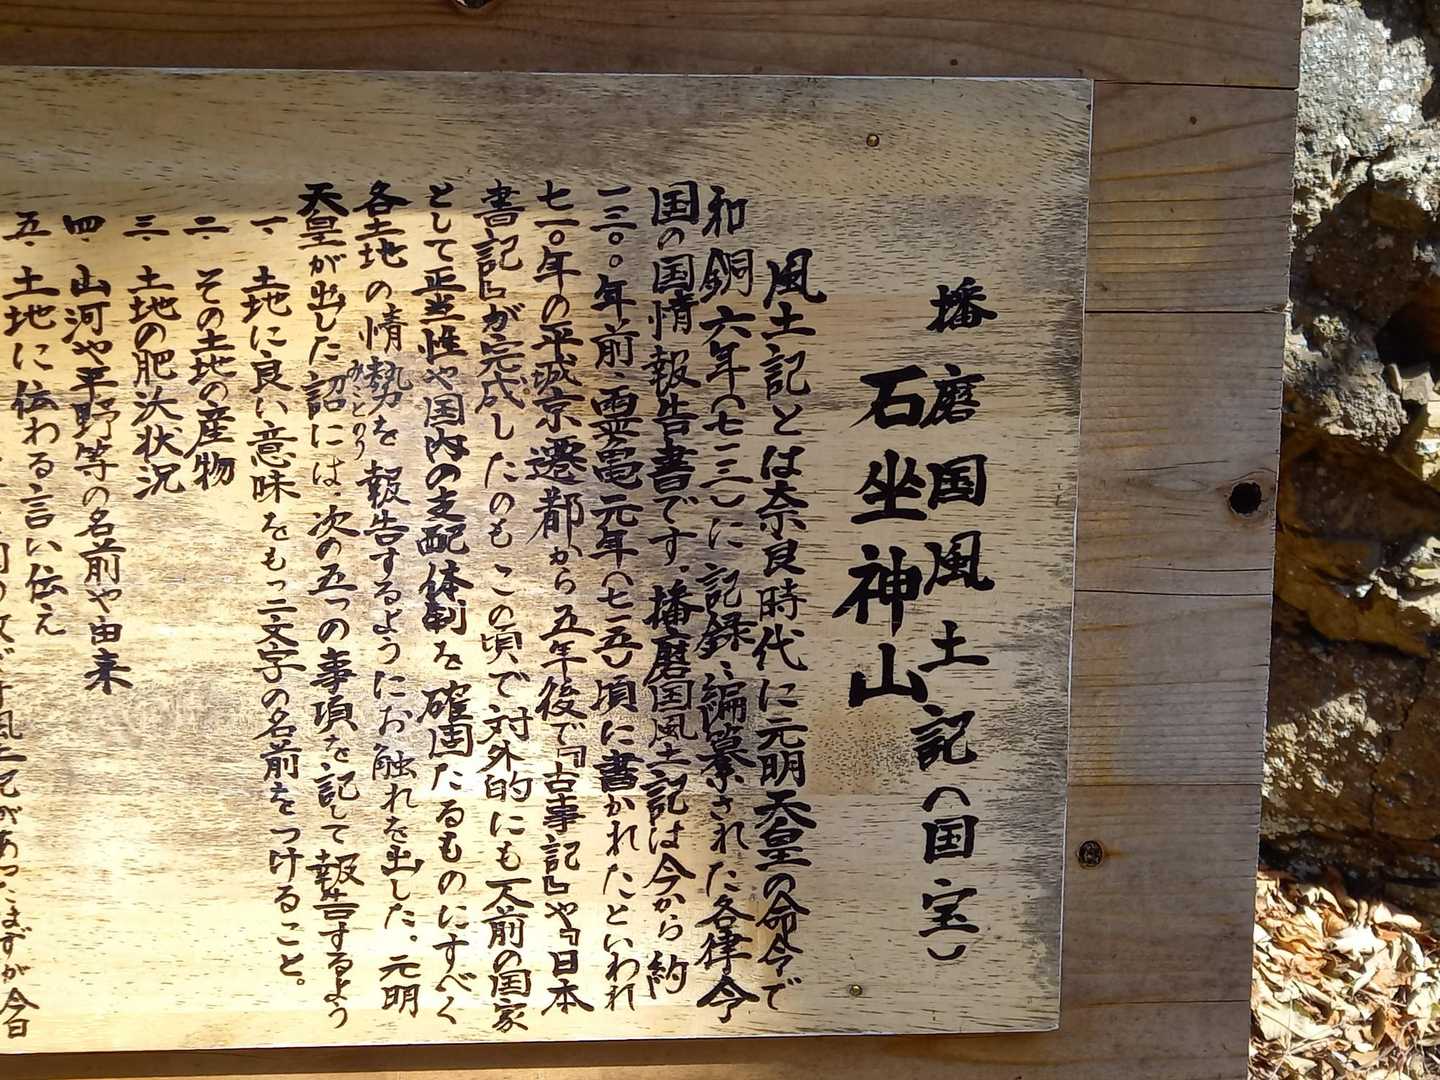 播磨国風土記(国宝)
石坐神山
風土記とは奈良時代に元明天皇の命令で
和銅六年(七一三)に記録、編纂された各律令
国の国情報告書です。播磨国風土記は今から約
一三〇〇年前、霊亀元年(七一五)頃に書かれたといわれ
七一〇年の平城京遷都から五年後で『古事記』や『日本
書記』が完成したのもこの頃で対外的にも天前の国家
として正当性や国内の支配体制を確固たるものにすべく
各土地の情勢を報告するようにお触れを出した。元明
天皇が出した詔には、次の五つの事項を記して報告するよう
みことのり
一、土地に良い意味をもつ二文字の名前をつけること。
二、その土地の産物
三、土地の肥沃状況
四、山河や平野等の名前や由来
五、土地に伝わる言い伝え
風土記があったはずが今日